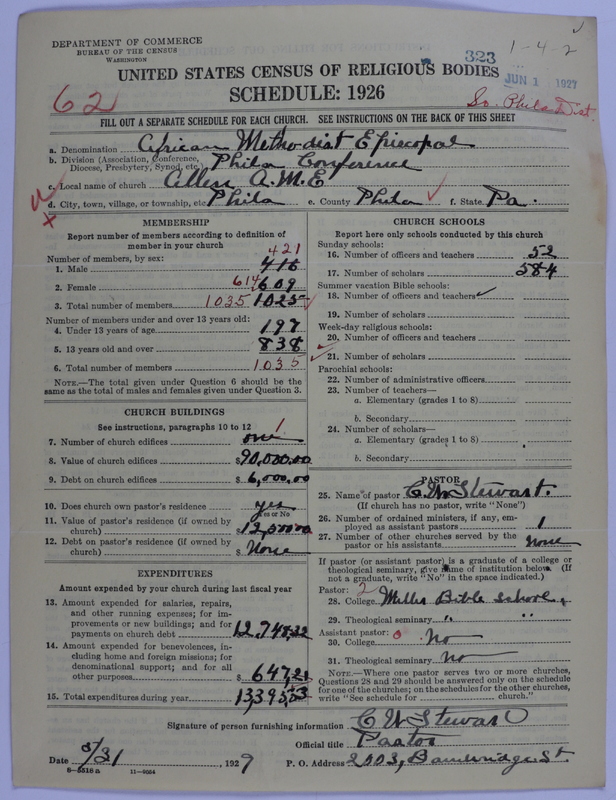 DEPARTMENT OF COMMERCE
BUREAU OF THE CENSUS
WASHINGTON
323
1-4-2
JUN 1 1927
UNITED STATES CENSUS OF RELIGIOUS BODIES
SCHEDULE: 1926
62
So. Phila Dist.
FILL OUT A SEPARATE SCHEDULE FOR EACH CHURCH. SEE INSTRUCTIONS ON THE BACK OF THIS SHEET
a. Denomination African Methodist Episcopal
b. Division (Association, Conference, Diocese, Presbytery, Synod, etc.) Phila Conference
c. Local name of church Allen A.M.E
d. City, town, village, or township, etc. Phila e. County Phila f. State Pa.
MEMBERSHIP
Report number of members according to definition of
member in your church
Number of members, by sex:
421
1. Male 416
2. Female 614 609
3. Total number of members 1035 1025
Number of members under and over 13 years old:
4. Under 13 years of age 197
5. 13 years old and over 838
6. Total number of members 1035
NOTE.—The total given under Question 6 should be the
same as the total of males and females given under Question 3.
CHURCH BUILDINGS
See instructions, paragraphs 10 to 12
7. Number of church edifices one 1
8. Value of church edifices $ 90,000.00
9. Debt on church edifices $ 6,000.00
10. Does church own pastor's residence yes
Yes or No
11. Value of pastor's residence (if owned by
church) $
12. Debt on pastor's residence (if owned by
church) $ None
EXPENDITURES
Amount expended by your church during last fiscal year
13. Amount expended for salaries, repairs,
and other running expenses; for im-
provements or new buildings; and for
payments on church debt 12,748.22
14. Amount expended for benevolences, in-
cluding home and foreign missions; for
denominational support; and for all
other purposes $ 647,21
15. Total expenditures during year
CHURCH SCHOOLS
Report here only schools conducted by this church
Sunday schools:
16. Number of officers and teachers 52
17. Number of scholars 584
Summer vacation Bible schools:
18. Number of officers and teachers
19. Number of scholars
Week-day religious schools:
20. Number of officers and teachers
21. Number of scholars
Parochial schools:
22. Number of administrative officers
23. Number of teachers—
a. Elementary (grades 1 to 8)
b. Secondary
24. Number of scholars—
a. Elementary (grades 1 to 8)
b. Secondary
PASTOR
25. Name of pastor C W Stewart.
(If church has no pastor, write "None")
26. Number of ordained ministers, if any, em-
ployed as assistant pastors 1
27. Number of other churches served by the
pastor or his assistants none
If pastor (or assistant pastor) is a graduate of a college or
theological seminary, give name of institution below. (If
not a graduate, write "No" in the space indicated.)
Pastor: 2
28. College Bible School
29. Theological seminary " "
Assistant pastor: 0
30. College No
31. Theological seminary No
NOTE.—Where one pastor serves two or more churches,
Questions 28 and 29 should be answered only on the schedule
for one of the churches; on the schedules for the other churches,
write "See schedule for church."
Signature of person furnishing information C W Stewart
Official title Pastor
Date 5/31, 1927 P. O. Address 2003, Bainbridge St.
8—5516 a 11—9054